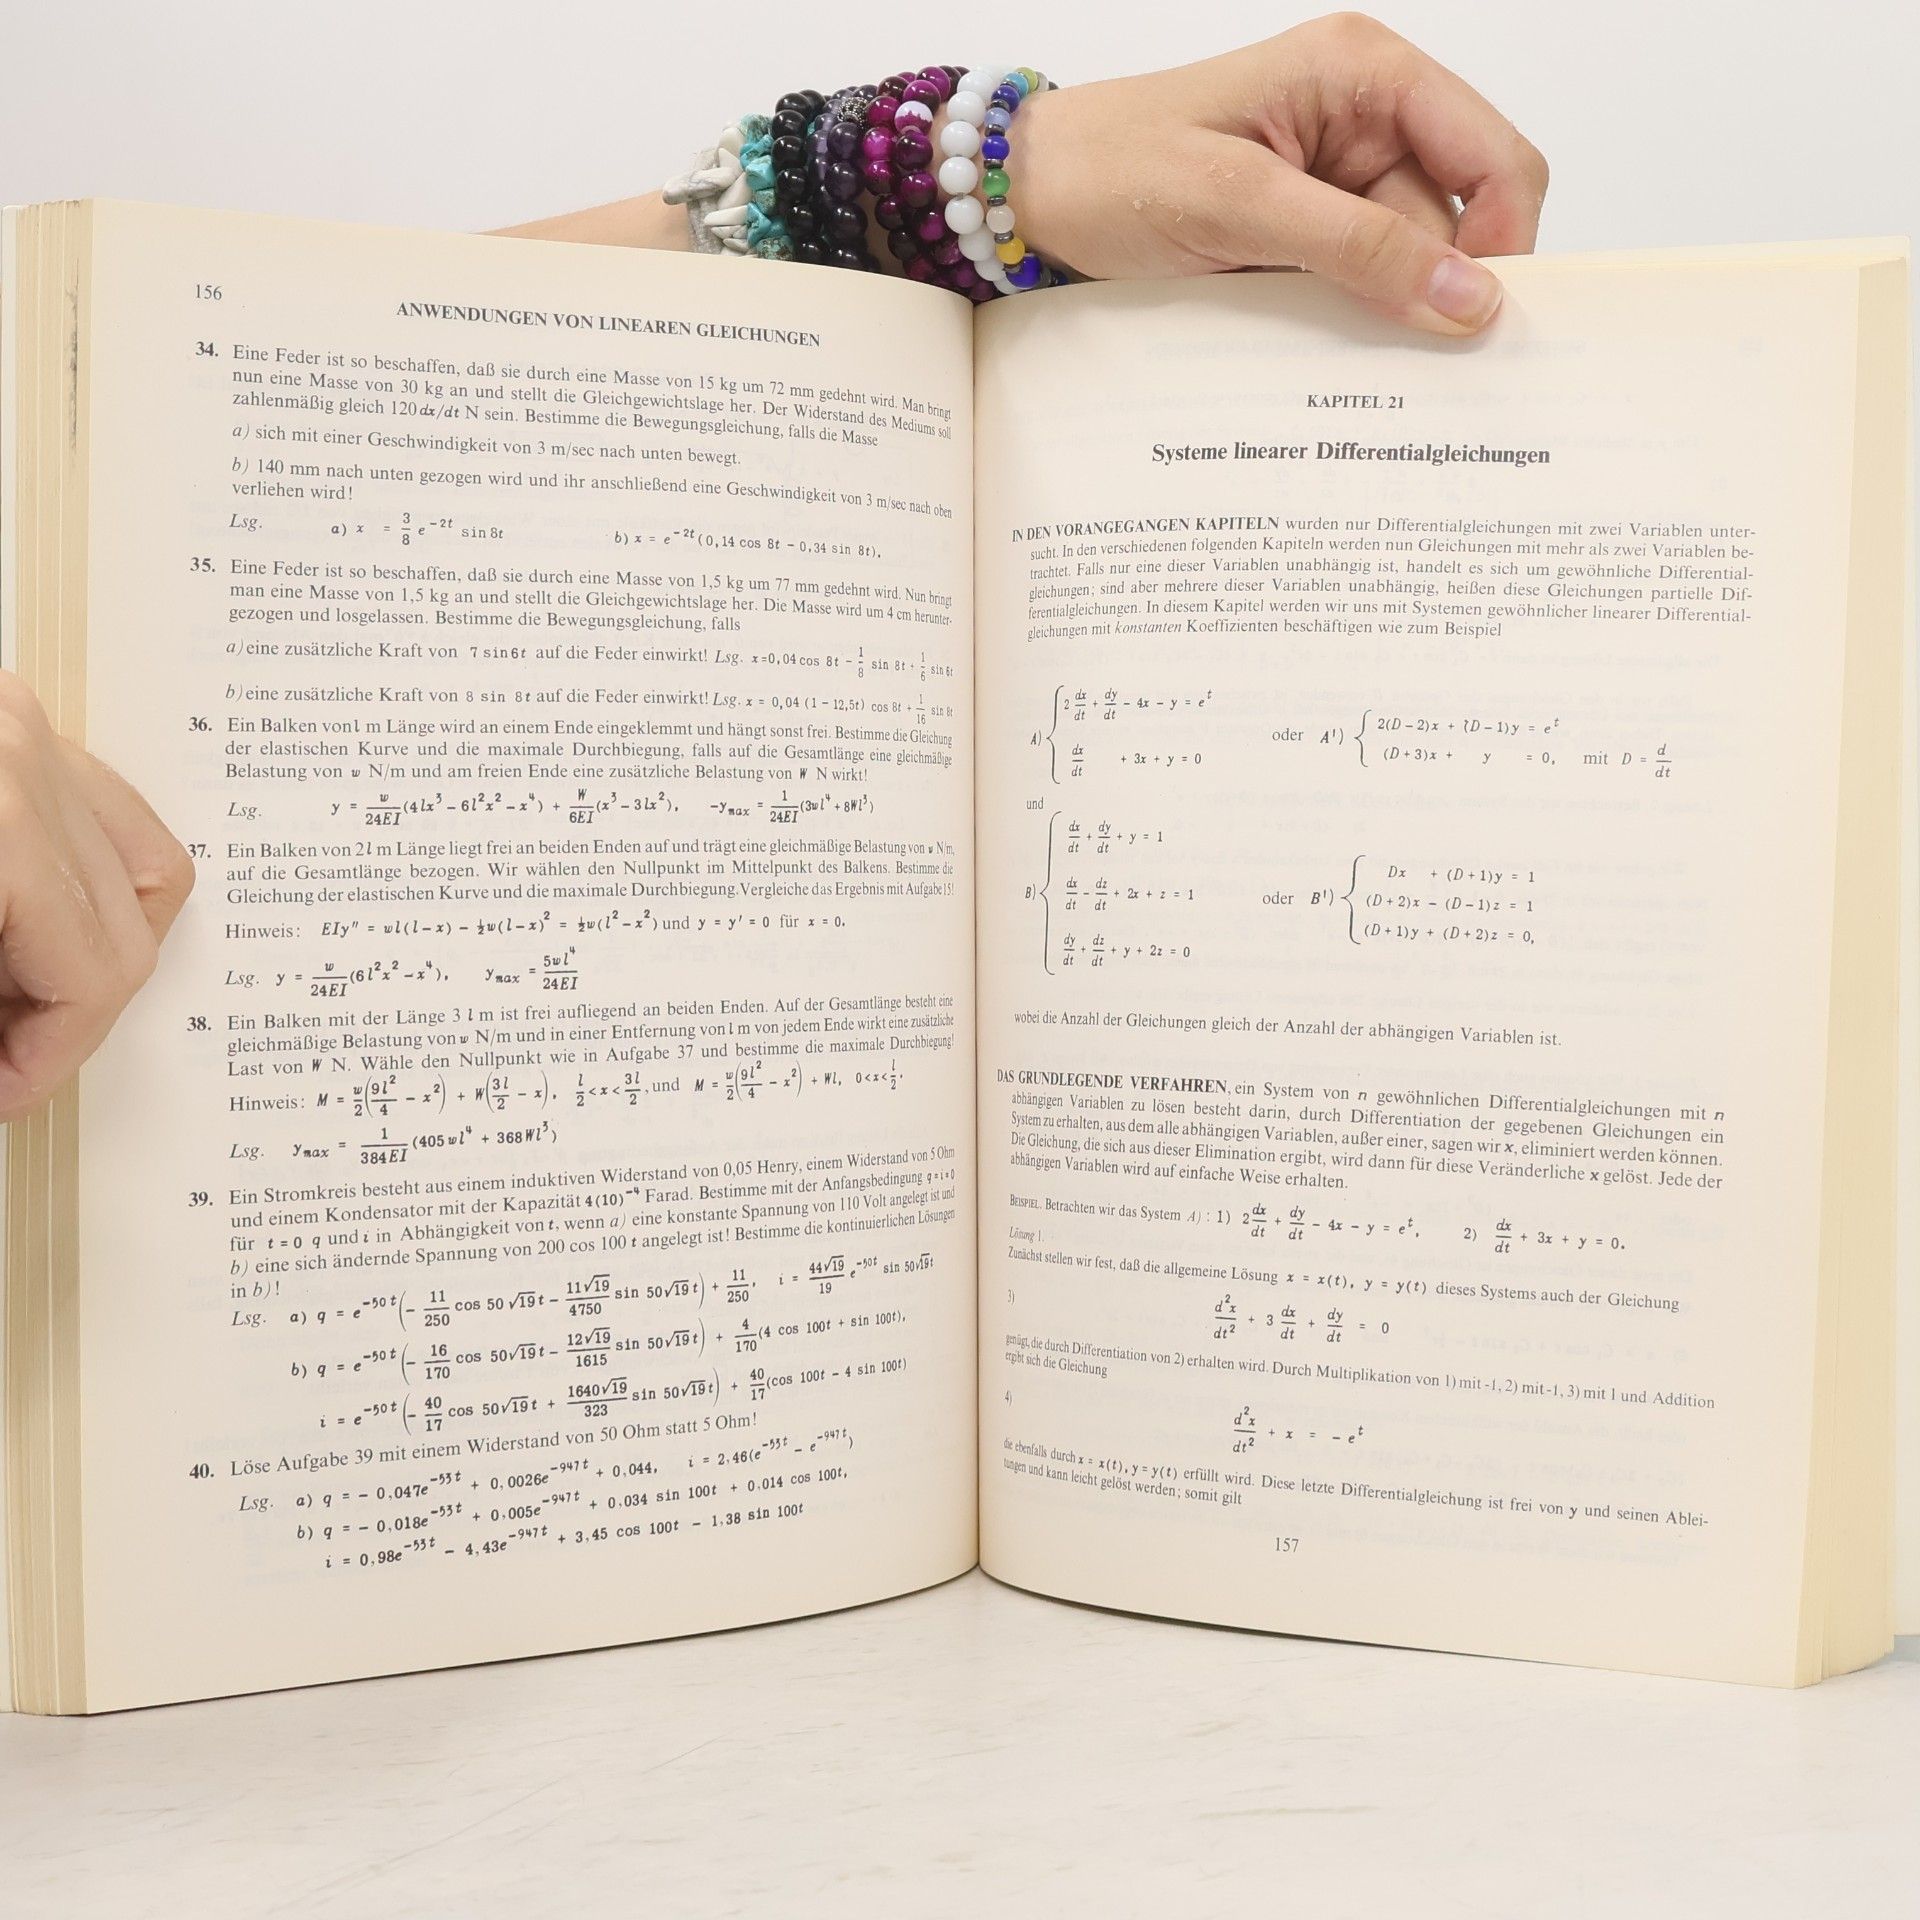 156
ANWENDUNGEN VON LINEAREN GLEICHUNGEN
34. Eine Feder ist so beschaffen, daß sie durch eine Masse von 15 kg um 72 mm gedehnt wird. Man bringt
nun eine Masse von 30 kg an und stellt die Gleichgewichtslage her. Der Widerstand des Mediums soll
zahlenmäßig gleich 120 dx/dt N sein. Bestimme die Bewegungsgleichung, falls die Masse
a) sich mit einer Geschwindigkeit von 3 m/sec nach unten bewegt.
b) 140 mm nach unten gezogen wird und ihr anschließend eine Geschwindigkeit von 3 m/sec nach oben
verliehen wird!
Lsg. a) x = 3/8 e^{-2t} sin 8t b) x = e^{-2t}(0,14 cos 8t − 0,34 sin 8t).
35. Eine Feder ist so beschaffen, daß sie durch eine Masse von 1,5 kg um 77 mm gedehnt wird. Nun bringt
man eine Masse von 1,5 kg an und stellt die Gleichgewichtslage her. Die Masse wird um 4 cm herunter-
gezogen und losgelassen. Bestimme die Bewegungsgleichung, falls
a) eine zusätzliche Kraft von 7 sin6t auf die Feder einwirkt! Lsg. x=0,04 cos 8t − 1/8 sin 8t + 1/6 sin 6t
b) eine zusätzliche Kraft von 8 sin 8t auf die Feder einwirkt! Lsg. x = 0,04 (1 − 12,5t) cos 8t + 1/16 sin 8t
36. Ein Balken von l m Länge wird an einem Ende eingeklemmt und hängt sonst frei. Bestimme die Gleichung
der elastischen Kurve und die maximale Durchbiegung, falls auf die Gesamtlänge eine gleichmäßige
Belastung von w N/m und am freien Ende eine zusätzliche Belastung von W N wirkt!
Lsg. y = w/24EI (4lx³ − 6l²x² − x⁴) + W/6EI (x³ − 3lx²), −y_max = 1/24EI (3wl⁴ + 8Wl³)
37. Ein Balken von 2l m Länge liegt frei an beiden Enden auf und trägt eine gleichmäßige Belastung von w N/m,
auf die Gesamtlänge bezogen. Wir wählen den Nullpunkt im Mittelpunkt des Balkens. Bestimme die
Gleichung der elastischen Kurve und die maximale Durchbiegung. Vergleiche das Ergebnis mit Aufgabe 15!
Hinweis: EIy″ = wl(l−x) − ½w(l−x)² = ½w(l²−x²) und y = y′ = 0 für x = 0.
Lsg. y = w/24EI (6l²x² − x⁴), y_max = 5wl⁴/24EI
38. Ein Balken mit der Länge 3 l m ist frei aufliegend an beiden Enden. Auf der Gesamtlänge besteht eine
gleichmäßige Belastung von w N/m und in einer Entfernung von l m von jedem Ende wirkt eine zusätzliche
Last von W N. Wähle den Nullpunkt wie in Aufgabe 37 und bestimme die maximale Durchbiegung!
Hinweis: M = w/2 (9l²/4 − x²) + W(3l/2 − x), l/2 < x < 3l/2, und M = w/2 (9l²/4 − x²) + Wl, 0<x<l/2.
Lsg. y_max = 1/384EI (405wl⁴ + 368Wl³)
39. Ein Stromkreis besteht aus einem induktiven Widerstand von 0,05 Henry, einem Widerstand von 5 Ohm
und einem Kondensator mit der Kapazität 4(10)⁻⁴ Farad. Bestimme mit der Anfangsbedingung q=i=0
für t = 0 q und i in Abhängigkeit von t, wenn a) eine konstante Spannung von 110 Volt angelegt ist und
b) eine sich ändernde Spannung von 200 cos 100 t angelegt ist! Bestimme die kontinuierlichen Lösungen
in b)!
Lsg. a) q = e^{−50t}(− 11/250 cos 50√19 t − 11√19/4750 sin 50√19 t) + 11/250, i = 44√19/19 e^{−50t} sin 50√19t
b) q = e^{−50t}(− 16/170 cos 50√19t − 12√19/1615 sin 50√19t) + 4/170 (4 cos 100t + sin 100t),
i = e^{−50t}(− 40/17 cos 50√19t + 1640√19/323 sin 50√19t) + 40/17 (cos 100t − 4 sin 100t)
40. Löse Aufgabe 39 mit einem Widerstand von 50 Ohm statt 5 Ohm!
Lsg. a) q = − 0,047e^{−53t} + 0,0026e^{−947t} + 0,044, i = 2,46(e^{−53t} − e^{−947t})
b) q = − 0,018e^{−53t} + 0,005e^{−947t} + 0,034 sin 100t + 0,014 cos 100t,
i = 0,98e^{−53t} − 4,43e^{−947t} + 3,45 cos 100t − 1,38 sin 100t
KAPITEL 21
Systeme linearer Differentialgleichungen
IN DEN VORANGEGANGEN KAPITELN wurden nur Differentialgleichungen mit zwei Variablen unter-
sucht. In den verschiedenen folgenden Kapiteln werden nun Gleichungen mit mehr als zwei Variablen be-
trachtet. Falls nur eine dieser Variablen unabhängig ist, handelt es sich um gewöhnliche Differential-
gleichungen; sind aber mehrere dieser Variablen unabhängig, heißen diese Gleichungen partielle Dif-
ferentialgleichungen. In diesem Kapitel werden wir uns mit Systemen gewöhnlicher linearer Differential-
gleichungen mit konstanten Koeffizienten beschäftigen wie zum Beispiel
A) { 2 dx/dt + dy/dt − 4x − y = e^t
dx/dt + 3x + y = 0
oder A') { 2(D−2)x + (D−1)y = e^t
(D+3)x + y = 0, mit D = d/dt
und
B) { dx/dt + dy/dt + y = 1
dx/dt − dz/dt + 2x + z = 1
dy/dt + dz/dt + y + 2z = 0
oder B') { Dx + (D+1)y = 1
(D+2)x − (D−1)z = 1
(D+1)y + (D+2)z = 0,
wobei die Anzahl der Gleichungen gleich der Anzahl der abhängigen Variablen ist.
DAS GRUNDLEGENDE VERFAHREN, ein System von n gewöhnlichen Differentialgleichungen mit n
abhängigen Variablen zu lösen besteht darin, durch Differentiation der gegebenen Gleichungen ein
System zu erhalten, aus dem alle abhängigen Variablen, außer einer, sagen wir x, eliminiert werden können.
Die Gleichung, die sich aus dieser Elimination ergibt, wird dann für diese Veränderliche x gelöst. Jede der
abhängigen Variablen wird auf einfache Weise erhalten.
BEISPIEL. Betrachten wir das System A) : 1) 2 dx/dt + dy/dt − 4x − y = e^t, 2) dx/dt + 3x + y = 0.
Lösung 1.
Zunächst stellen wir fest, daß die allgemeine Lösung x = x(t), y = y(t) dieses Systems auch der Gleichung
3) d²x/dt² + 3 dx/dt + dy/dt = 0
genügt, die durch Differentiation von 2) erhalten wird. Durch Multiplikation von 1) mit -1, 2) mit -1, 3) mit 1 und Addition
ergibt sich die Gleichung
4) d²x/dt² + x = − e^t
die ebenfalls durch x = x(t), y = y(t) erfüllt wird. Diese letzte Differentialgleichung ist frei von y und seinen Ablei-
tungen und kann leicht gelöst werden; somit gilt
157